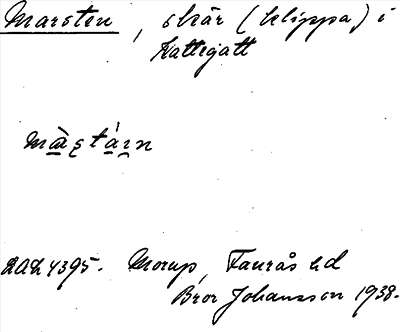 Marsten, skär (klippa) i
Kattegatt
mæ̀ʂtáın
AAL 4395. Morup, Faurås hd
Bror Johansson 1938.